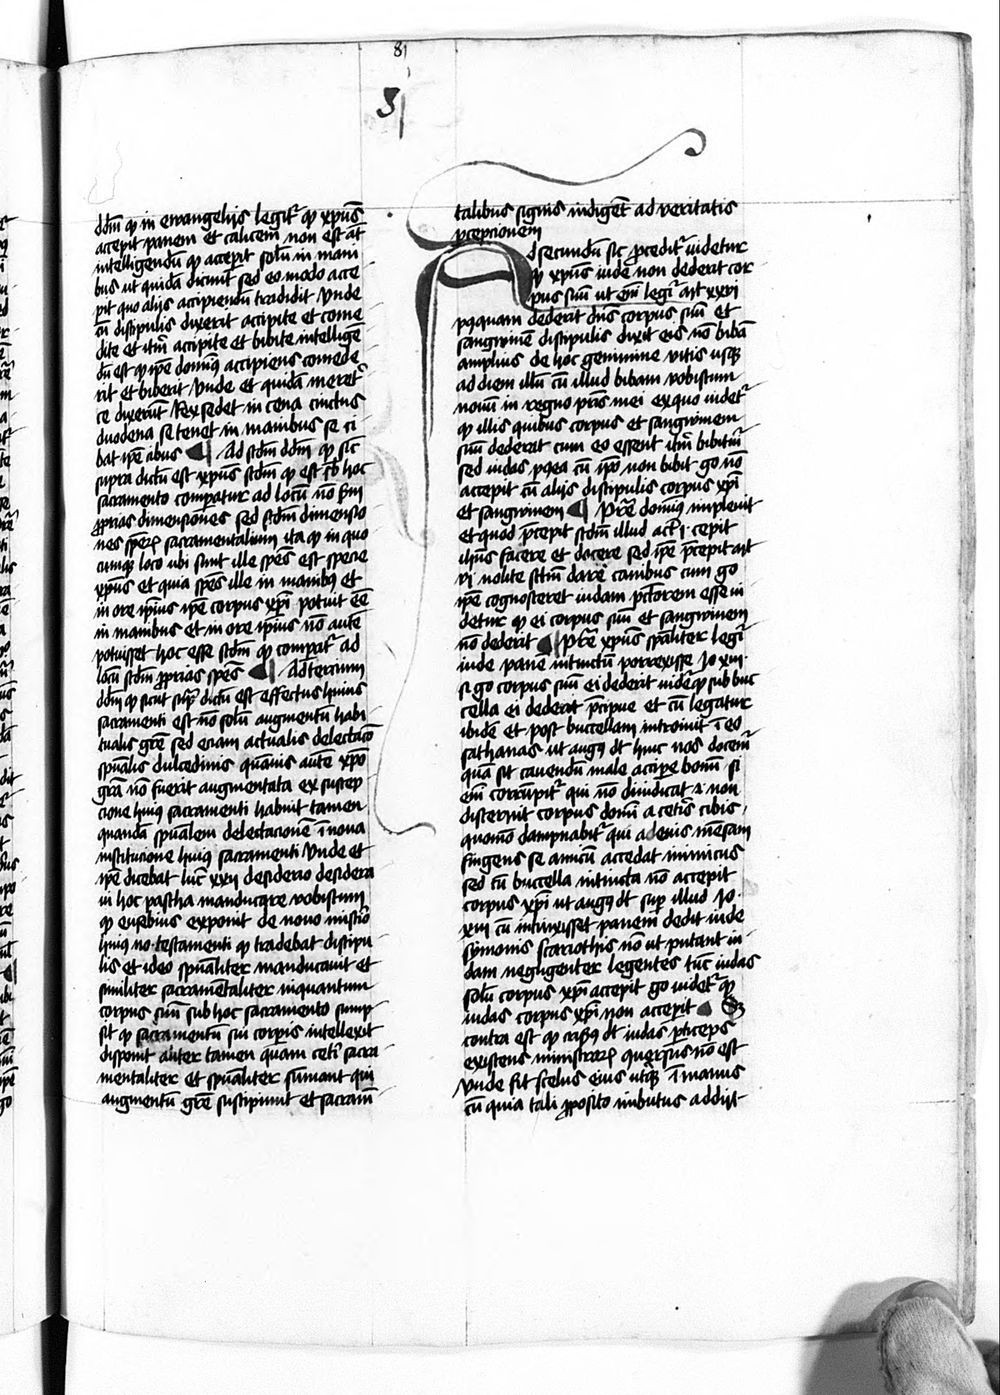 81
81
ddm̄ qꝫ in ewangelijs legitʳ qꝫ xpūs
accepit panem et calicem non est at̄
intelligendū qꝫ accepit solū in mani
bus ut quidā dicunt sed eo modo acce
pit quo alijs accipiendū tradidit Unde
cū discipulis dixerit accipite et come
dite et itm̄ accipite et bibite intelligē
dū est qꝫ ip̄e domīus accipiens comede
rit et biberit Unde et quidā meretʳ
ce dixerūt Rex sedet in cena cinctus
duodena se tenet in manibus se ci
bat ip̄e cibus Ad scd̄m ddm̄ qꝫ sic̄
supra dictū est xpūs scd̄m qꝫ est sb̄ hoc
sacramento compatur ad locū nō scd̄m
ꝓprias dimensiones sed scd̄m dimensio
nes spēꝝ sacramentalium ita qꝫ in quo
cumqꝫ loco ubi sunt ille spēs est specie
xpūs et quia spēs ille in manibꝫ et
in ore ipīus ip̄e corpus xpī potuit ēē
in manibus et in ore ipīus nō autē
potuisset hoc esse scd̄m qꝫ compatʳ ad
locū scd̄m ꝓprias spēs Ad tercium
ddm̄ qꝫ sicut supʳ dictū est effectus huius
sacramenti est nō solū augmentū habi
tualis grē sed eciam actualis delectacō
spūalis dulcedinis quāuis autē xpō
grā nō fuerit augmentata ex suscep
cione huiꝫ sacramenti habuit tamen
quandā spūalem delectacionē ī noua
institucione huiꝫ sacramenti Unde et
ip̄e dicebat luc̄ xxij desiderio desidera
ui hoc pascha manducare vobiscum
qꝫ eusebius exponit de nouo mist̄io
huiꝫ no. testamenti qꝫ tradebat discipu
lis et ideo spūaliter manducauit et
similiter sacramētaliter inquantum
corpus suū sub hoc sacramento sump
sit qꝫ sacramentū sui corpis intellexit
disponit aliter tamen quam cetʳi sacra
mentaliter et spūaliter sumant qui
augmentū grē suscipiunt et sacram̄
talibus signis indigēt ad veritatis
ꝑcepcionem
Ad secundū sic ꝓceditʳ uidetur
qꝫ xpūs iude non dederit cor
pus suū ut em̄ legiʳ mt xxvi
pꝰquam dederat dn̄s corpus suū et
sanguinē discipulis dixit eis nō bibā
amplius de hoc genimine vitis usqꝫ
ad diem illū cū illud bibam vobiscum
nouū in regno pr̄is mei ex quo uidetʳ
qꝫ illis quibus corpus et sanguinem
suū dederat cum eo essent itm̄ bibituʳ
sed iudas pꝰea cū ip̄o non bibit go nō
accepit cū alijs discipulis corpus xpī
et sanguinem Pt̄e domīus impleuit
et quod p̄cepit scd̄m illud act. i. cepit
ih̄us facere et docere sed ip̄e p̄cepit mt
vi nolite sc̄tm dare canibus cum go
ip̄e cognosceret iudam pctōrem esse ui
detur qꝫ ei corpus suū et sanguinem
nō dederit Pt̄e xpūs spāliter legiʳ
iude panē intinctū porrexisse Jo xiii.
si go corpus suū ei dederit uidetʳ qꝫ sub buc
cella ei dederat p̄cipue et cū legatur
ibidē et post buccellam introiuit ī eū
sathanas ut augꝫ dt hinc nos docemʳ
quā sit cauendū male accipe bonū si
em̄ corripitʳ qui nō diiudicat .i. non
discernit corpus domīi a ceteis cibis
quomō dampnabitʳ qui ad eius mēsam
fingens se amicū accedat inimicus
sed cū buccella intincta nō accepit
corpus xpī ut augꝫ dt supʳ illud Jo.
xiii cū intinxisset panem dedit iude
symonis scariothis nō ut putant qui
dam negligenter legentes tūc iudas
solū corpus xpī accepit go uidetʳ qꝫ
iudas corpus xpī non accepit Sꝫ
contra est qꝫ crisꝫ dt iudas pticeps
existens ministraꝝ ꝯuersus nō est
Unde fit scelus eius utqꝫ īmanius
tū quia tali ꝓposito imbutus addijt